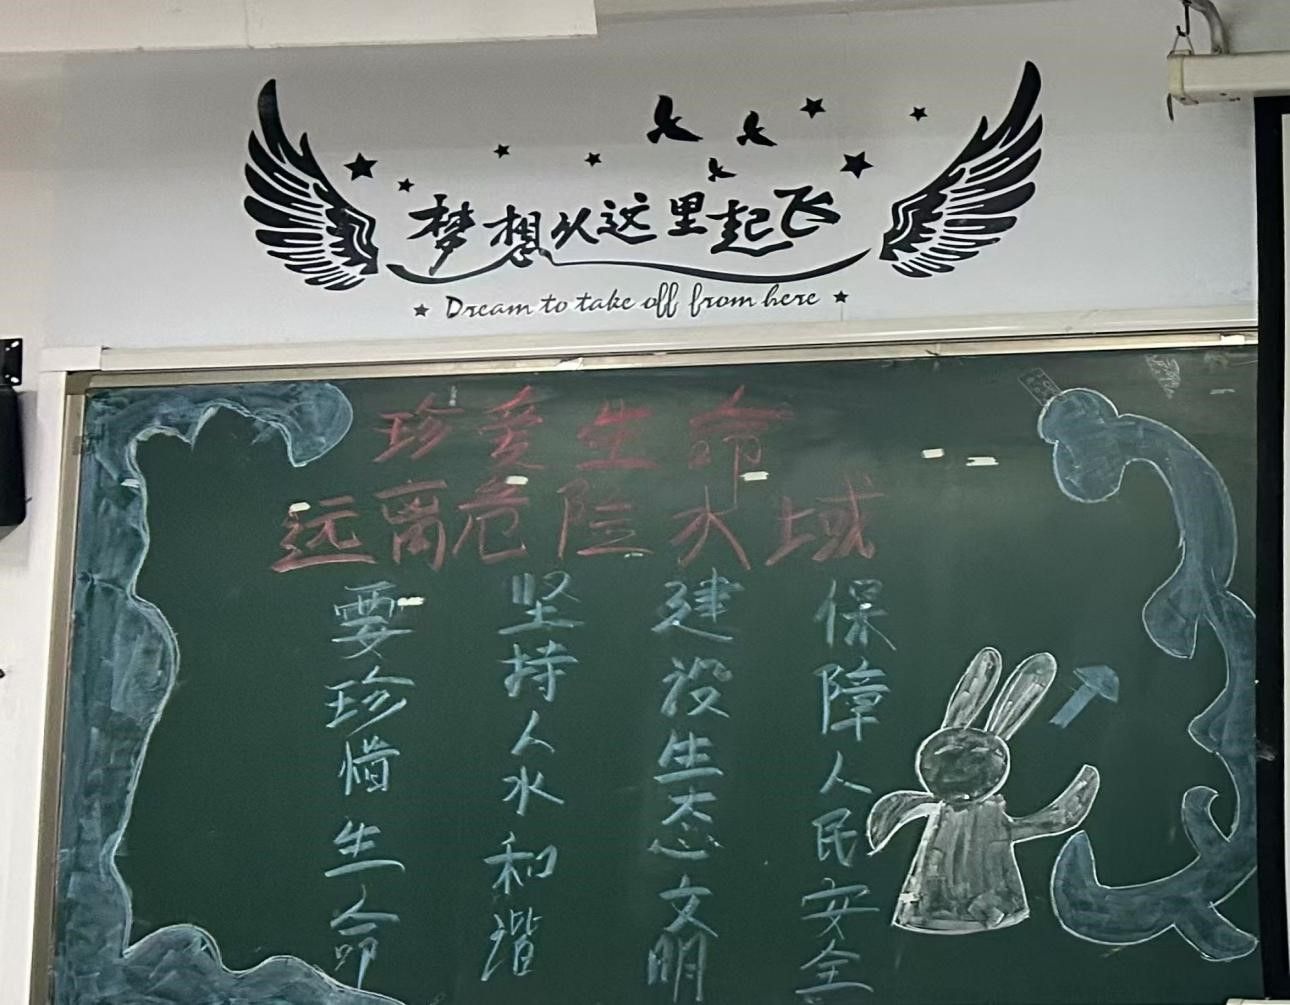 梦想从这里起飞
Dream to take off from here
珍爱生命
远离危险水域
要珍惜生命
坚持人水和谐
建设生态文明
保障人民安全